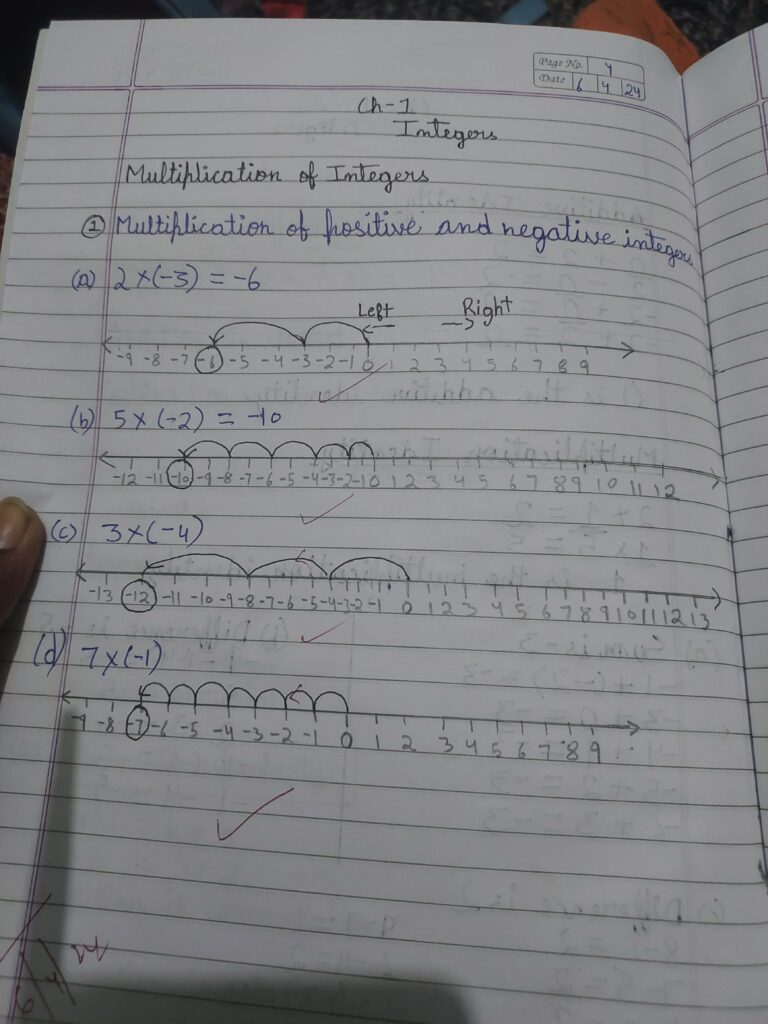 Page No. 4
Date 6 4 24
Ch-1
Integers
Multiplication of Integers
① Multiplication of positive and negative integers
(a) 2×(-3) = -6
Left Right
-9 -8 -7 -6 -5 -4 -3 -2 -1 0 1 2 3 4 5 6 7 8 9
(b) 5×(-2) = -10
-12 -11 -10 -9 -8 -7 -6 -5 -4 -3 -2 -1 0 1 2 3 4 5 6 7 8 9 10 11 12
(c) 3×(-4)
-13 -12 -11 -10 -9 -8 -7 -6 -5 -4 -3 -2 -1 0 1 2 3 4 5 6 7 8 9 10 11 12 13
(d) 7×(-1)
-9 -8 -7 -6 -5 -4 -3 -2 -1 0 1 2 3 4 5 6 7 8 9
6/4/24